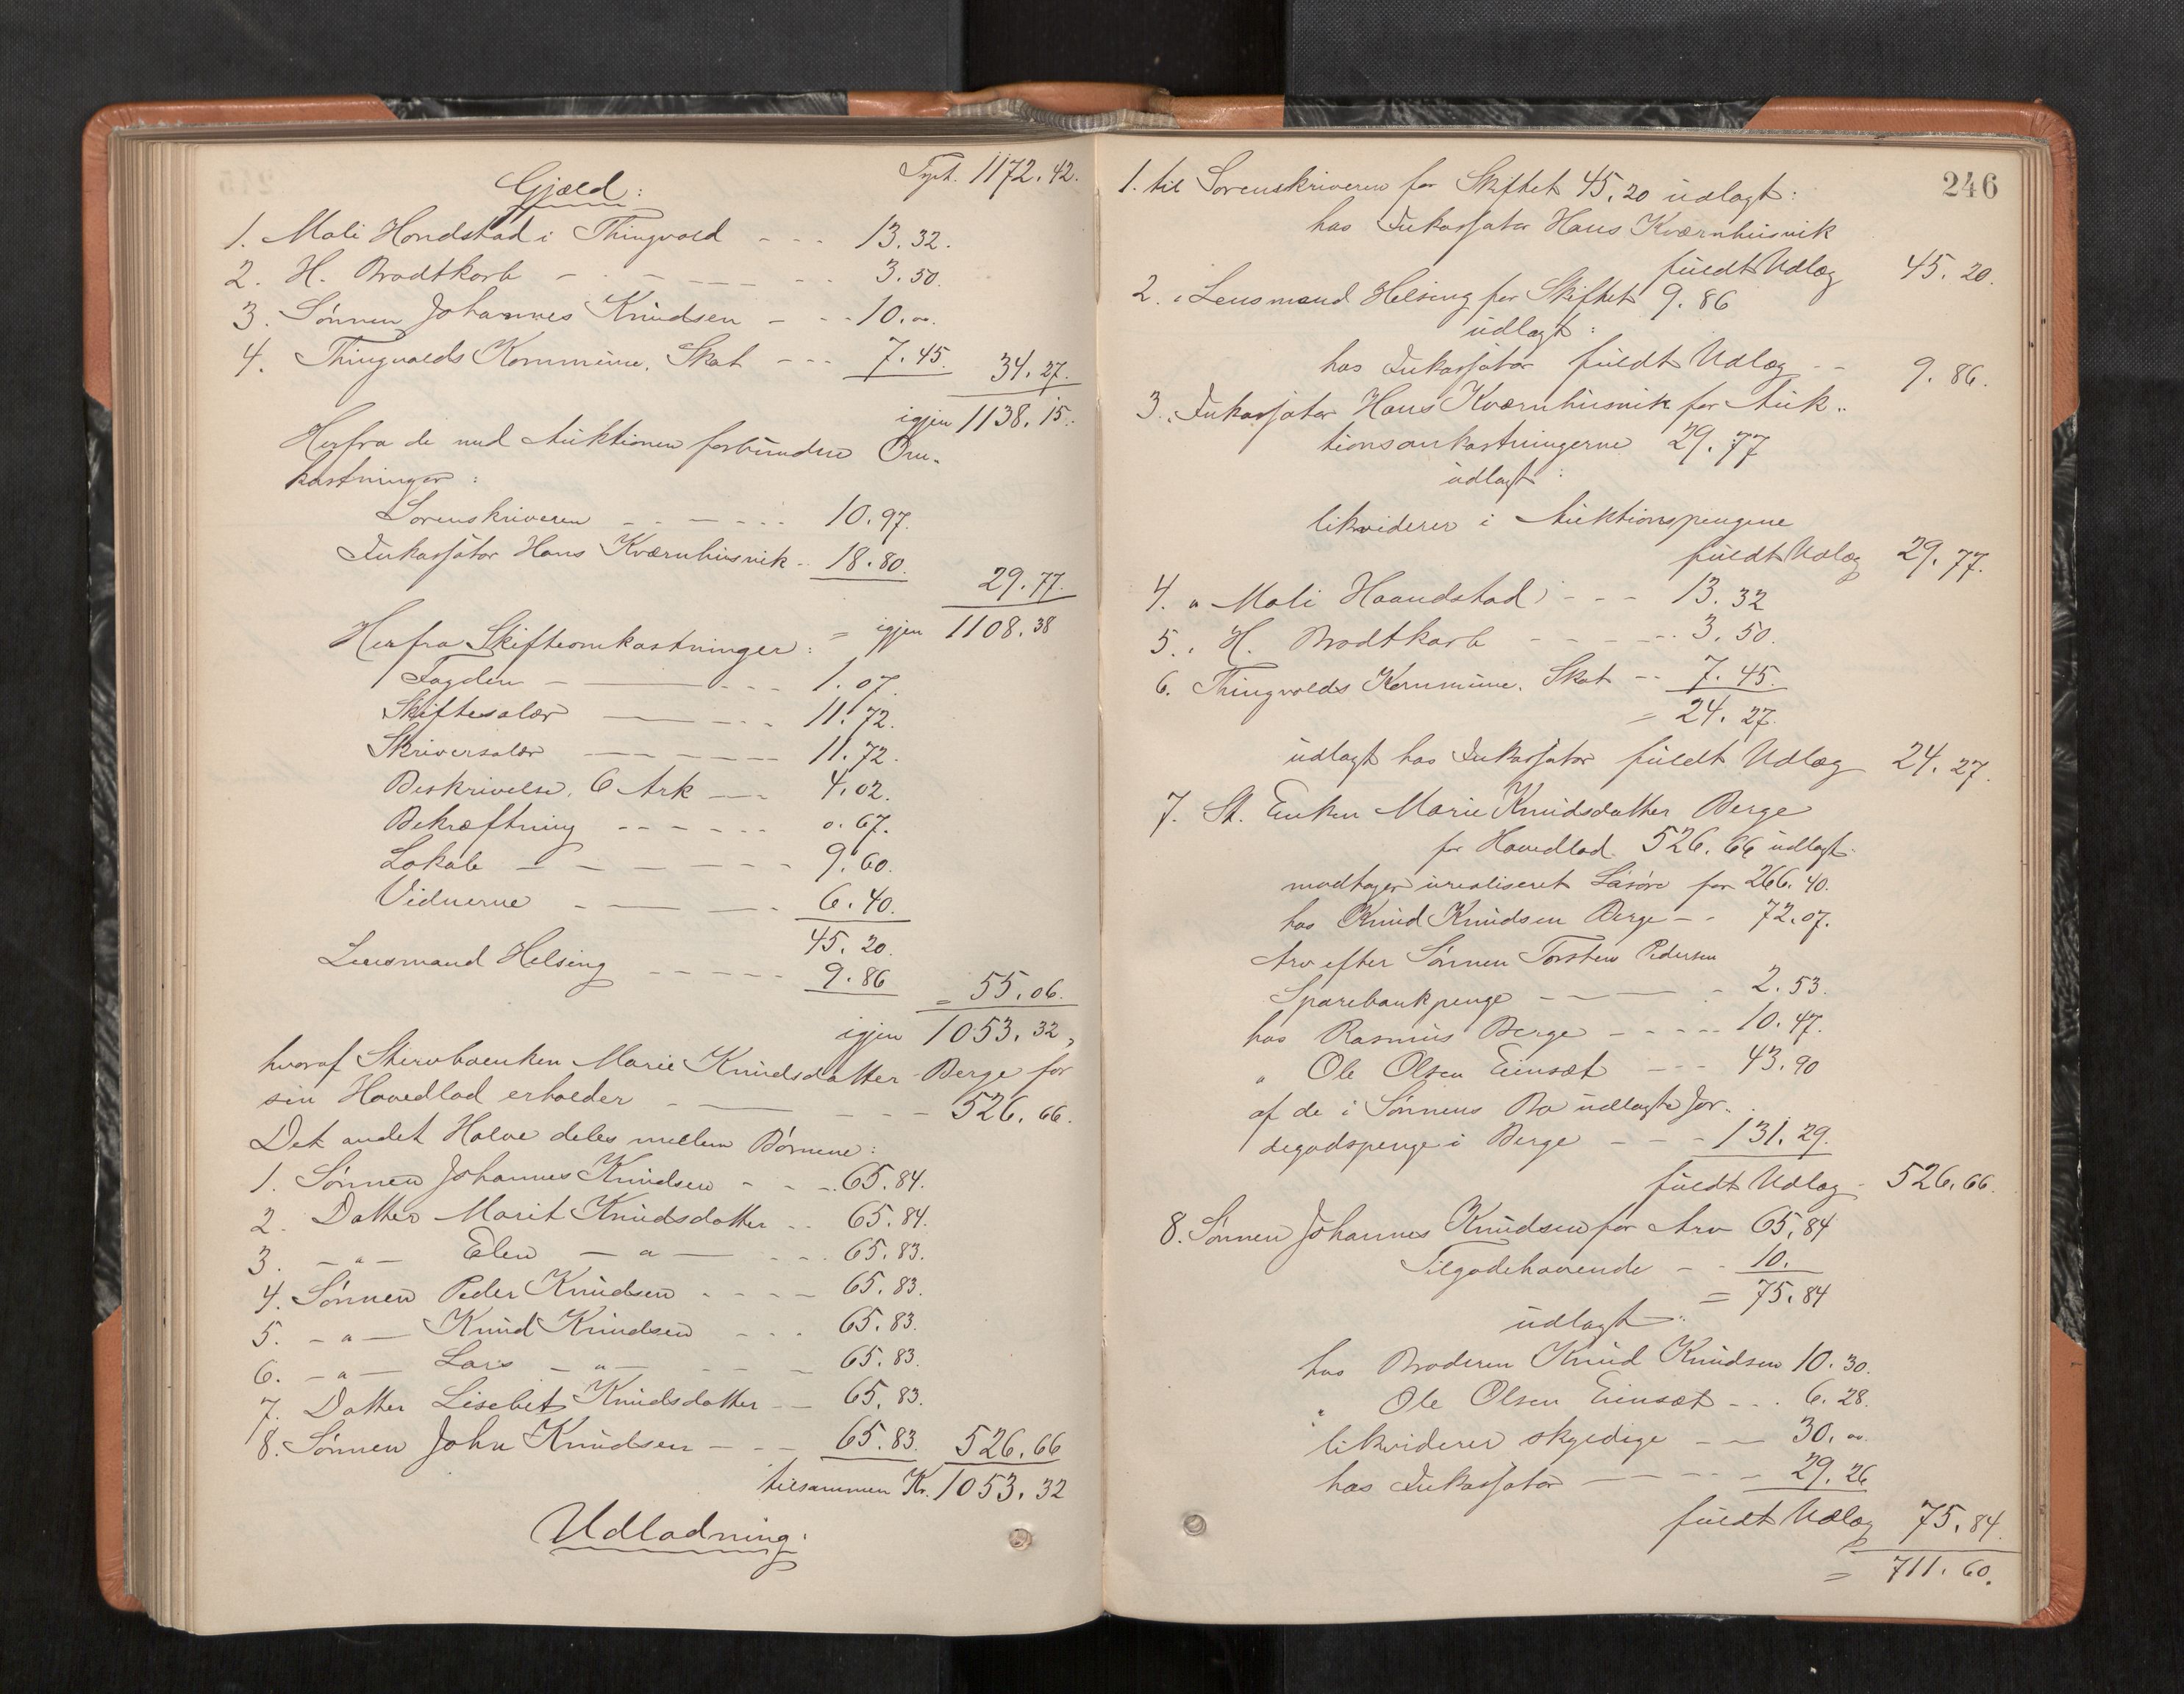 Trpt. 1172.42.
Gjæld:
1. Mali Hondstad i Thingvold - - - 13.32.
2. H. Brodtkorb - - - - - 3.50.
3. Sønnen Johannes Knudsen - - - 10.00.
4. Thingvolds Kommune, Skat - - - 7.45. 34.27.
igjen 1138.15.
Herfra de med Auktionen forbundne Om-
kostninger:
Sorenskriveren - - - - - 10.97.
Inkassator Hans Kværnhusvik - 18.80. 29.77.
Herfra Skifteomkostninger: = igjen 1108.38
Fogden - - - - 1.07.
Skiftesalær - - - 11.72.
Skriversalær - - - - 11.72.
Beskrivelse, 6 Ark - - 4.02.
Bekræftning - - - - - 0.67.
Lokale - - - - - 9.60.
Vidnerne - - - - 6.40.
45.20.
Lensmand Helsing - - - - - 9.86 = 55.06.
igjen 1053.32,
hvoraf Stervboenken Marie Knudsdatter Berge for
sin Hovedlod erholder - - - - 526.66.
Det andet Halve deles mellem Børnene:
1. Sønnen Johannes Knudsen - - - 65.84.
2. Datter Marit Knudsdatter - - 65.84.
3. - " - Elen - " - - - 65.83.
4. Sønnen Peder Knudsen - - - - 65.83.
5. - " - Knud Knudsen - - - 65.83.
6. - " - Lars - " - - - - 65.83.
7. Datter Lisebet Knudsdatter - - 65.83.
8. Sønnen John Knudsen - - - 65.83. 526.66
tilsammen Kr. 1053.32
Udlodning:
246
1. til Sorenskriveren for Skiftet 45.20 udlagt:
hos Inkassator Hans Kværnhusvik
fuldt Udlæg 45.20.
2. " Lensmand Helsing for Skiftet 9.86
udlagt:
hos Inkassator fuldt Udlæg - - 9.86.
3. " Inkassator Hans Kværnhusvik for Auk-
tionsomkostningerne 29.77
udlagt:
likviderer i Auktionspengene
fuldt Udlæg 29.77.
4. " Mali Haandstad - - - 13.32
5. " H. Brodtkorb - - - - - 3.50.
6. Thingvolds Kommune, Skat - - 7.45.
= 24.27.
udlagt hos Inkassator fuldt Udlæg 24.27.
7. St. Enken Marie Knudsdatter Berge
for Hovedlod 526.66 udlagt:
modtager urealiseret Løsøre for 266.40.
hos Knud Knudsen Berge - - 72.07.
Arv efter Sønnen Torsten Pedersen
Sparebankpenge - - - - 2.53.
hos Rasmus Berge - - - - - 10.47.
" Ole Olsen Einsæt - - - 43.90
af de i Sønnens Bo udlagte Jor-
degodspenge i Berge - - - 131.29.
fuldt Udlæg - 526.66.
8. Sønnen Johannes Knudsen for Arv 65.84
Tilgodehavende - - 10.
= 75.84
udlagt:
hos Broderen Knud Knudsen 10.30.
" Ole Olsen Einsæt - - - 6.28.
likviderer skyldige - - 30.00.
hos Inkassator - - - - 29.26
fuldt Udlæg 75.84.
= 711.60.